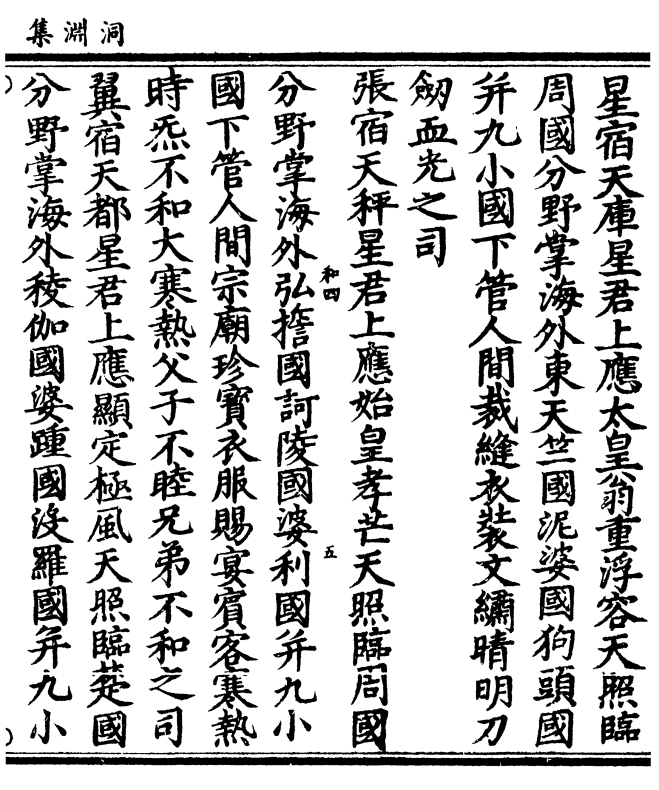 洞淵集
星宿天庫星君上應太皇翁重浮容天照臨
周國分野掌海外東天竺國泥婆國狗頭國
并九小國下管人間裁縫衣裝文繡晴明刀
劒血光之司
張宿天秤星君上應始皇孝芒天照臨周國
分野掌海外弘擔國訶陵國婆利國并九小
和四
五
國下管人間宗廟珍寶衣服賜宴賓客寒熱
時炁不和大寒熱父子不睦兄弟不和之司
翼宿天都星君上應顯定極風天照臨楚國
分野掌海外稜伽國婆踵國沒羅國并九小